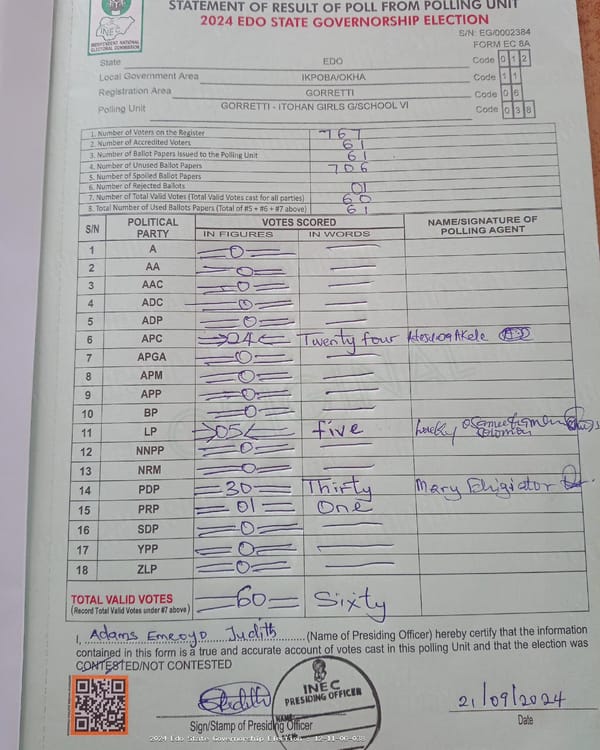 STATEMENT OF RESULT OF POLL FROM POLLING UNIT
2024 EDO STATE GOVERNORSHIP ELECTION
INEC
INDEPENDENT NATIONAL ELECTORAL COMMISSION
S/N: EG/0002384
FORM EC 8A
State EDO Code 0 1 2
Local Government Area IKPOBA/OKHA Code 1 1
Registration Area GORRETTI Code 0 6
Polling Unit GORRETTI - ITOHAN GIRLS G/SCHOOL VI Code 0 3 8
1. Number of Voters on the Register 767
2. Number of Accredited Voters 61
3. Number of Ballot Papers Issued to the Polling Unit 61
4. Number of Unused Ballot Papers 706
5. Number of Spoiled Ballot Papers
6. Number of Rejected Ballots 01
7. Number of Total Valid Votes (Total Valid Votes cast for all parties) 60
8. Total Number of Used Ballots Papers (Total of #5 + #6 + #7 above) 61
S/N POLITICAL PARTY VOTES SCORED NAME/SIGNATURE OF POLLING AGENT
IN FIGURES IN WORDS
1 A 0
2 AA 0
3 AAC 0
4 ADC 0
5 ADP 0
6 APC 24 Twenty four
7 APGA 0
8 APM 0
9 APP 0
10 BP 0
11 LP 05 five
12 NNPP 0
13 NRM 0
14 PDP 30 Thirty Mary Ehigiator
15 PRP 01 One
16 SDP 0
17 YPP 0
18 ZLP 0
TOTAL VALID VOTES 60 Sixty
(Record Total Valid Votes under #7 above)
I, Adams Emeoyo Judith (Name of Presiding Officer) hereby certify that the information
contained in this form is a true and accurate account of votes cast in this polling Unit and that the election was
CONTESTED/NOT CONTESTED
INEC
PRESIDING OFFICER
NAME
21/09/2024
Sign/Stamp of Presiding Officer Date
2024 Edo State Governorship Election - 12-11-06-038